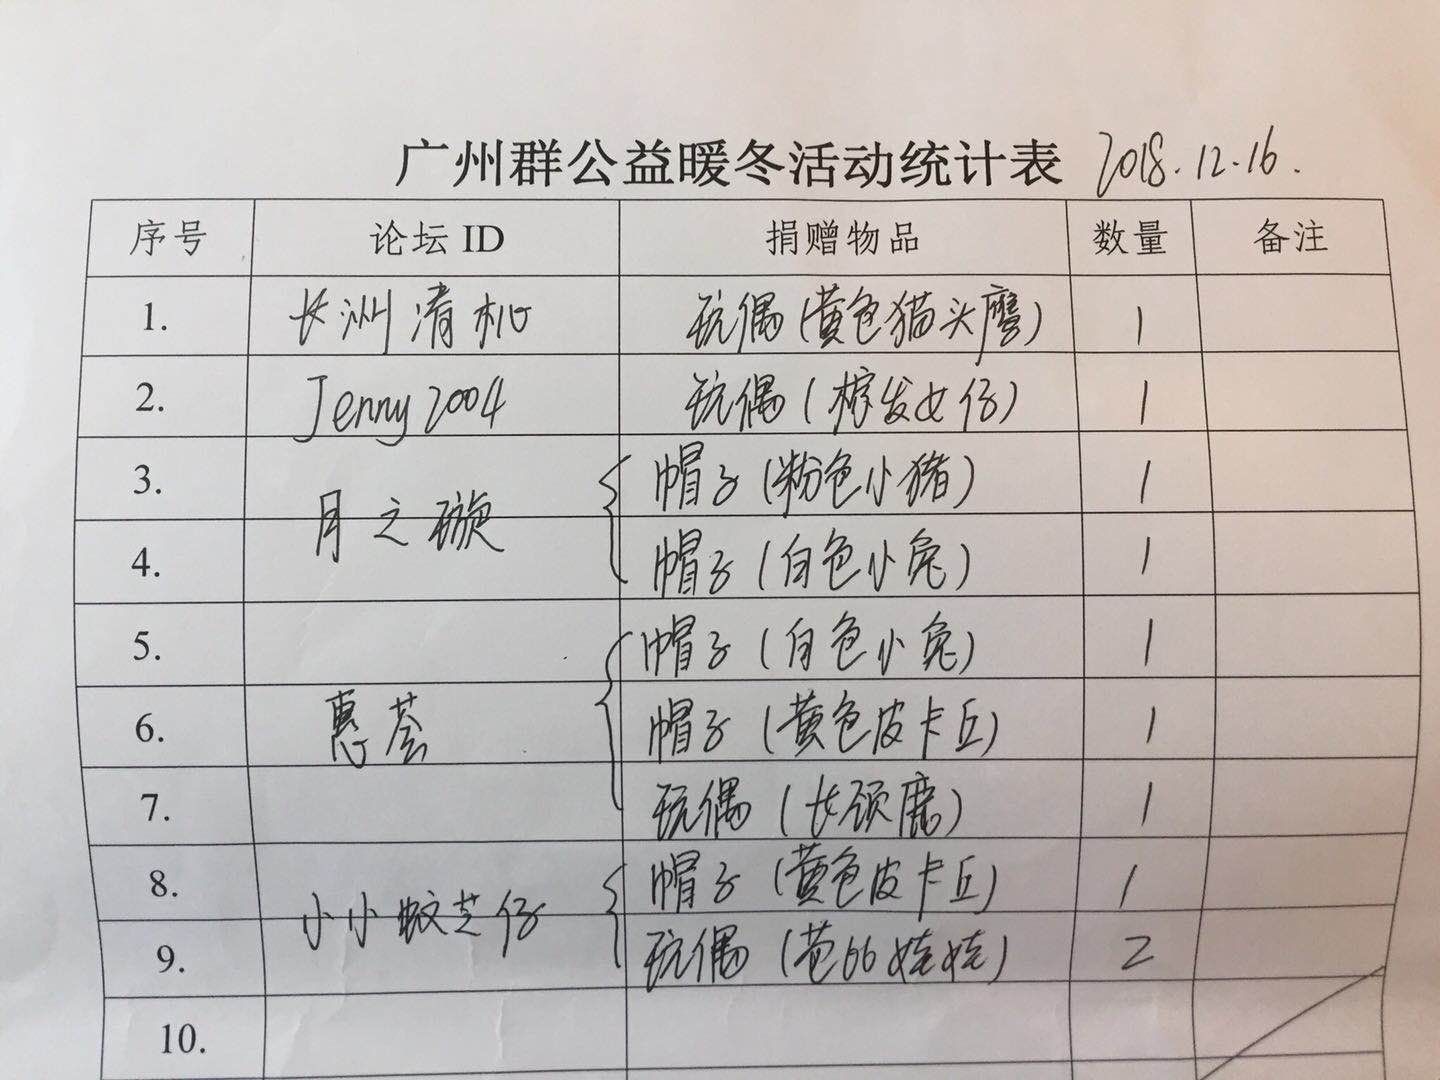 广州群公益暖冬活动统计表 2018.12.16.
序号 论坛ID 捐赠物品 数量 备注
1. 长洲清机 玩偶(黄色猫头鹰) 1
2. Jenny2004 玩偶(棕发女仔) 1
3. 帽子(粉色小猪) 1
月之璇
4. 帽子(白色小兔) 1
5. 帽子(白色小兔) 1
6. 惠荟 帽子(黄色皮卡丘) 1
7. 玩偶(长颈鹿) 1
8. 帽子(黄色皮卡丘) 1
小小蚊芝仔
9. 玩偶(芭比娃娃) 2
10.